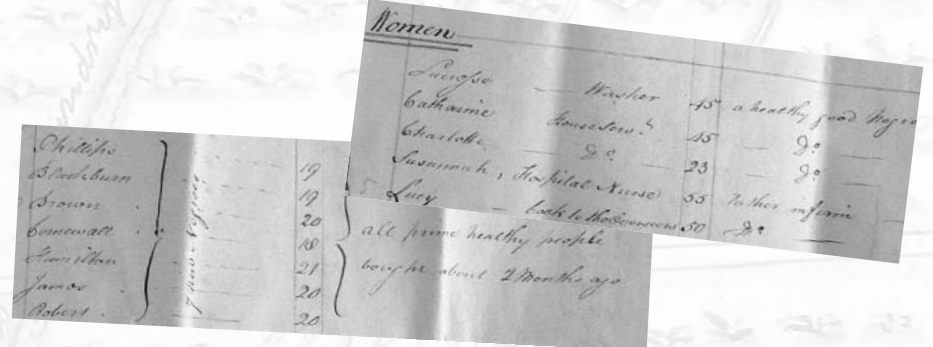 Women
Washer 45 a healthy good Negro
Catharine House Servt. 45 Do.
Charlotte Do. 23 Do.
Susannah, Hospital Nurse 55 Rather infirm
Lucy Cook to the Overseers 50 Do.
Phillips 19
Blackburn 19
Brown 20
Cornewall 18
Hamilton 21
James 20
Robert 20
7 New Negroes
all prime healthy people
bought about 2 Months ago